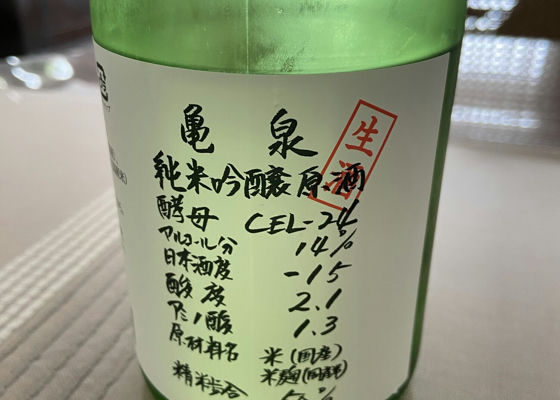 亀泉
生酒
純米吟醸原酒
酵母 CEL-24
アルコール分 14%
日本酒度 -15
酸度 2.1
アミノ酸 1.3
原材料名 米(国産)
米麹(国産米)
精米歩合 50%